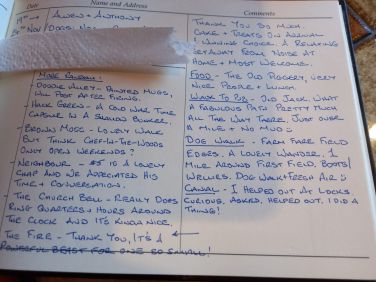 Date
Name and Address
Comments
19th → Alwen + Anthony
Nov Dogs:
More Random!
- Doodle Alley - Painted Mugs,
Will Post After Firing.
- Hack Green - A Cold War Time
Capsule in a Shadow Bunker.
- Brown Moss - Lovely Walk
But Think Chef-In-The-Woods
Only Open Weekends?
- Neighbour - #5 is a Lovely
Chap and We Appreciated His
Time + Conversation.
- The Church Bell - Really Does
Ring Quarters + Hours Around
The Clock and It's Kinda Nice.
The Fire - Thank You, It's A
Powerful Beast for One So Small!
Thank You So Much.
Cake + Treats on Arrival
A Winning Choice. A Relaxing
Getaway From Noise At
Home + Most Welcome.
Food - The Old Piggery, Very
Nice People + Lunch.
Walk to Pub - Old Jack. What
A Fabulous Path Pretty Much
All The Way There. Just Over
A Mile + No Mud
Dog Walk - Farm Fare Field
Edges. A Lovely Wander, 1
Mile Around First Field. Boots/
Wellies. Dog Walk + Fresh Air
Canal - I Helped Out At Locks
Curious, Asked, Helped Out. I Did A
Thing!